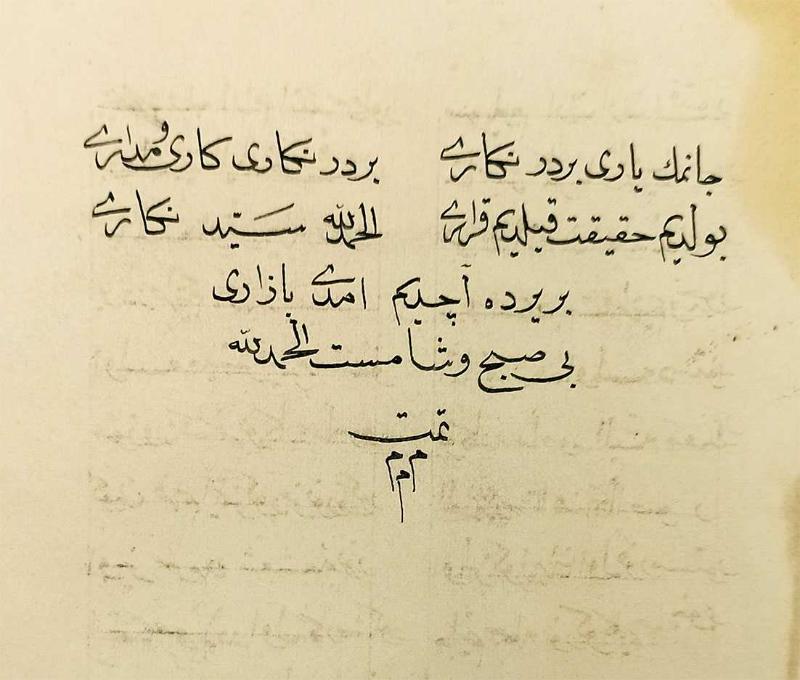 جانمك ياری بردر نكاری بردر نكاری كاری ومداری
بولديم حقيقت قيلديم قراری الحمدلله سيّد نكاری
بر يرده آچديم امدی بازاری
بی صبح وشامست الحمدلله
تمت
م م م